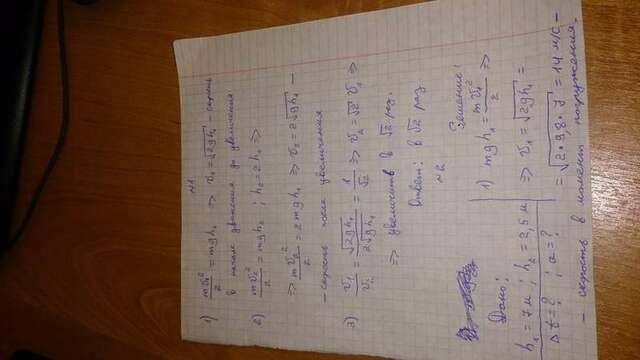 №1
1) mv₁²/2 = mgh₁ ⇒ v₁ = √2gh₁ – скорость
в начале движения до увеличения
2) mv₂²/2 = mgh₂ ; h₂ = 2h₁ ⇒
⇒ mv₂²/2 = 2mgh₁ ⇒ v₂ = 2√gh₁ –
– скорость после увеличения
3) v₁/v₂ = √2gh₁/2√gh₁ = 1/√2 ⇒ v₂ = √2 v₁ ⇒
⇒ увеличить в √2 раз.
Ответ: в √2 раз.
№2
Дано:
h₁ = 7м ; h₂ = 2,5 м
Δt = ? ; a = ?
Решение:
1) mgh₁ = mv₁²/2 ⇒
⇒ v₁ = √2gh₁ =
= √2·9,8·7 = 14 м/с –
– скорость в момент погружения.